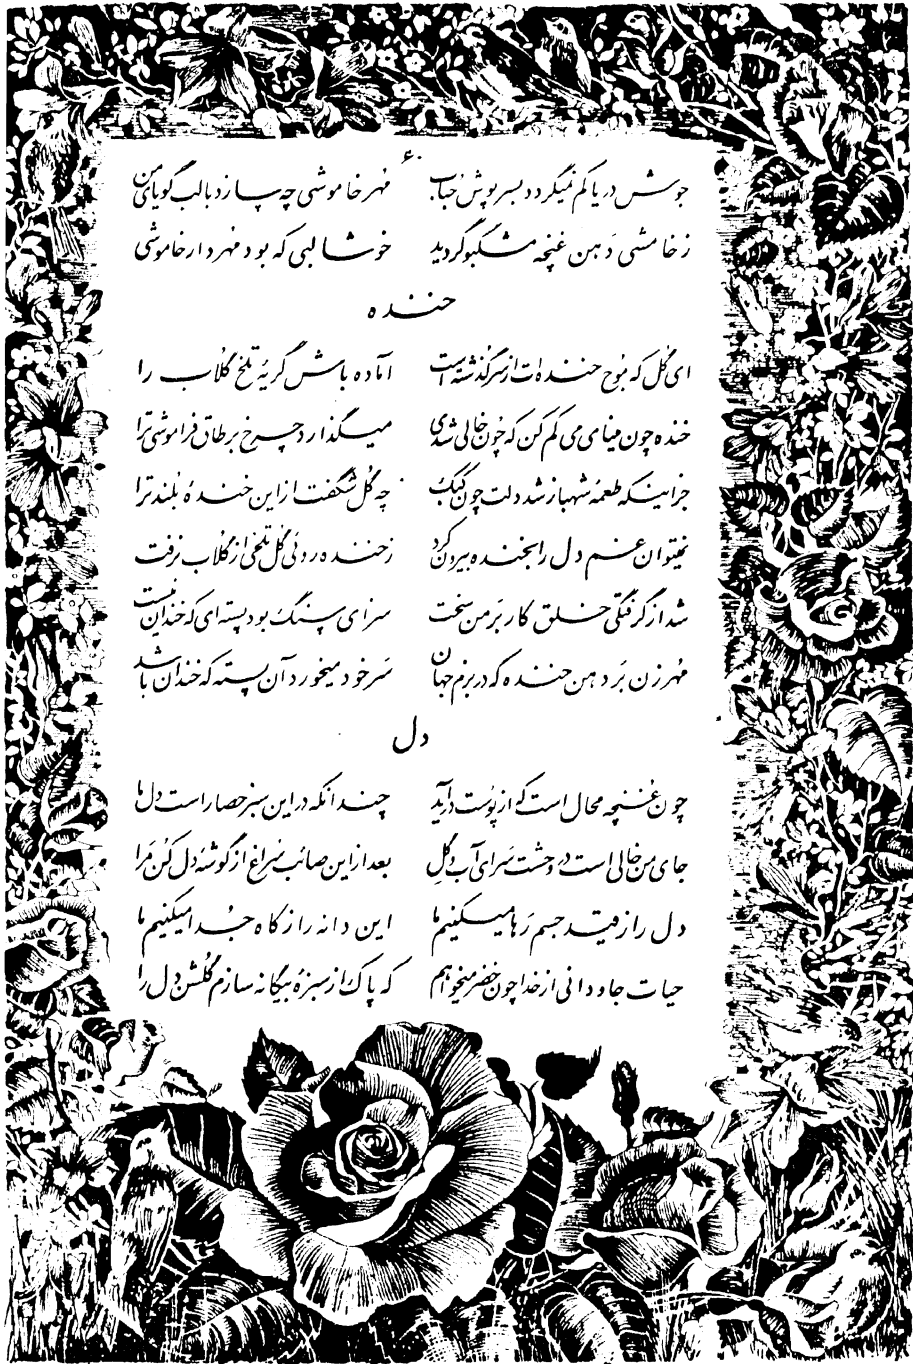 ۶۰
جوش دریا کم نمیگردد بسرپوش حباب مهر خاموشی چه سازد با لب گویای من
ز خامشی دهن غنچه مشکبو گردید خوشا لبی که بود مهردار خاموشی
خنده
ای گل که موج خنده ات از سر گذشته است آماده باش گریهٔ تلخ گلاب را
خنده چون مینای می کم کن که چون خالی شدی میگذارد چرخ بر طاق فراموشی ترا
جز اینکه طعمهٔ شهباز شد دلت چون کبک چه گل شگفت از این خندهٔ بلند ترا
نتوان غم دل را بخنده بیرون کرد ز خنده روئی گل تلخی از گلاب نرفت
شد از گرفتگی خلق کار بر من سخت سزای سنگ بود پسته ای که خندان نیست
مهر زن بر دهن خنده که در بزم جهان سر خود میخورد آن پسته که خندان باشد
دل
چون غنچه محال است که از پوست درآید چندانکه در این سبز حصار است دل ما
جای من خالی است در وحشت سرای آب و گل بعد از این صائب سراغ از گوشهٔ دل کن مرا
دل را ز قید جسم رها میکنیم ما این دانه را ز کاه جدا میکنیم ما
حیات جاودانی از خدا چون خضر میخواهم که پاک از سبزهٔ بیگانه سازم گلشن دل را